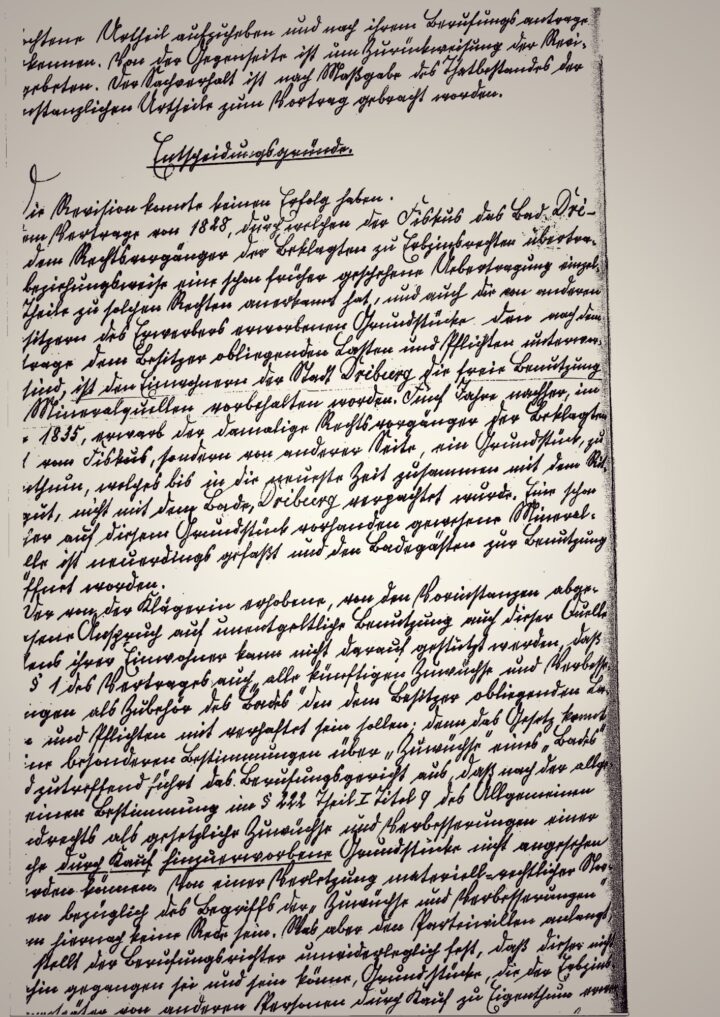 chtene Urtheil aufzuheben und nach ihrem Berufungsantrage
kennen. Von der Gegenseite ist um Zurückweisung der Revi-
gebeten. Der Sachverhalt ist nach Maßgabe des Thatbestandes der
nstanzlichen Urtheile zum Vortrag gebracht worden.
Entscheidungsgründe.
Die Revision konnte keinen Erfolg haben.
em Vertrage von 1828, durch welchen der Fiskus das Bad Dri-
dem Rechtsvorgänger der Beklagten zu Erbzinsrechten übertra-
beziehungsweise eine schon früher geschehene Uebertragung einzel-
Theile zu solchen Rechten anerkannt hat, und auch die von anderen
sitzern des Erwerbers erworbenen Grundstücke den nach dem
trage dem Besitzer obliegenden Lasten und Pflichten unterwor-
sind, ist den Einwohnern der Stadt Driburg die freie Benutzung
Mineralquellen vorbehalten worden. Fünf Jahre nachher, im
1835, erwarb der damalige Rechtsvorgänger der Beklagten
vom Fiskus, sondern von anderer Seite, ein Grundstück, zu
nthum, welches bis in die neueste Zeit zusammen mit dem Rit-
gut, nicht mit dem Bade Driburg verpachtet wurde. Eine schon
her auf diesem Grundstück vorhanden gewesene Mineral-
lle ist neuerdings gefaßt und den Badegästen zur Benutzung
öffnet worden.
Der von der Klägerin erhobene, von den Vorinstanzen abge-
sene Anspruch auf unentgeltliche Benutzung auch dieser Quelle
ens ihrer Einwohner kann nicht darauf gestützt werden, daß
§ 1 des Vertrages auch alle künftigen Zuwüchse und Verbesse-
ngen als Zubehör des „Bades" den dem Besitzer obliegenden La-
und Pflichten mit verhaftet sein sollen; denn das Gesetz kennt
ine besonderen Bestimmungen über „Zuwüchse" eines „Bades"
d zutreffend führt das Berufungsgericht aus, daß nach der allge-
einen Bestimmung im § 222 Theil I Titel 9 des Allgemeinen
ndrechts als gesetzliche Zuwüchse und Verbesserungen einer
che durch Kauf hinzuerworbene Grundstücke nicht angesehen
rden können. Von einer Verletzung materiell-rechtlicher Nor-
en bezüglich des Begriffs der „Zuwüchse und Verbesserungen"
nn hiernach keine Rede sein. Was aber den Parteiwillen anlangt,
stellt der Berufungsrichter unwiderleglich fest, daß dieser nicht
hin gegangen sei und sein könne, Grundstücke, die der Erbzins-
von anderen Personen durch Kauf zu Eigenthum erwer